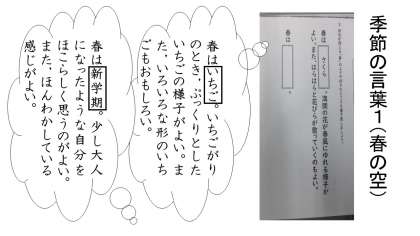 季節の言葉1(春の空)
春は さくら 。満開の花が春風にゆれる様子が
よい。また、はらはらと花びらが散っていくのもよい。
春は 。
春はいちご。いちごがり
のとき、ぷっくりとした
いちごの様子がよい。ま
た、いろいろな形のいち
ごもおもしろい。
春は新学期。少し大人
になったような自分を
ほこらしく思うのがよい。
また、ほんわかしている
感じがよい。